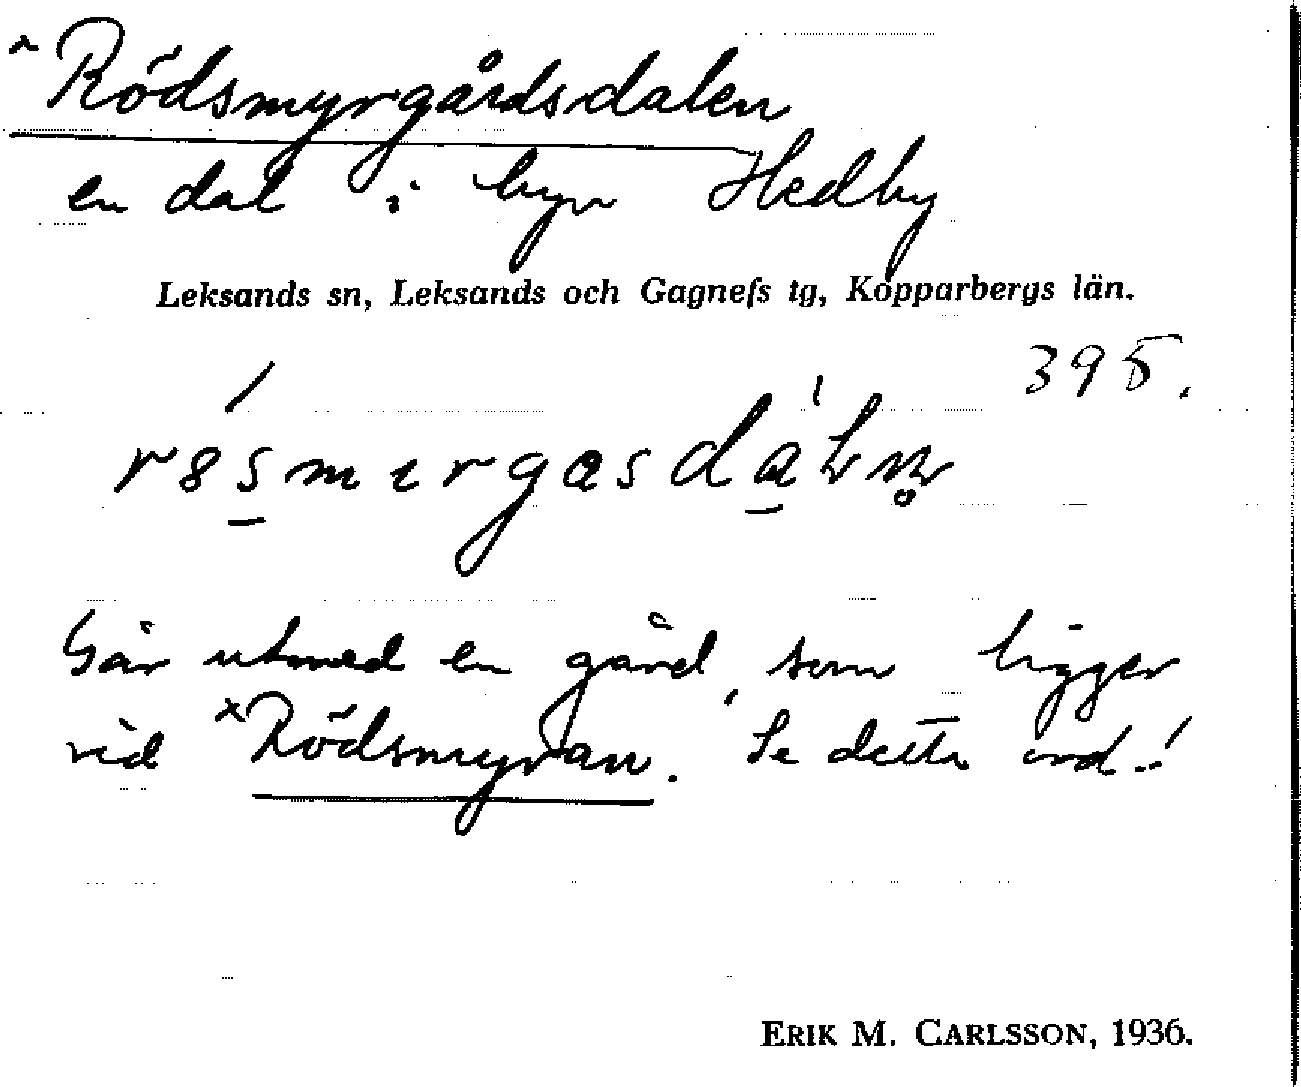 ^Rödsmyrgårdsdalen
en dal i byn Hedby
Leksands sn, Leksands och Gagnefs tg, Kopparbergs län.
395.
Går utmed en gård, som ligger
vid xRödsmyran. Se detta ord!
ERIK M. CARLSSON, 1936.